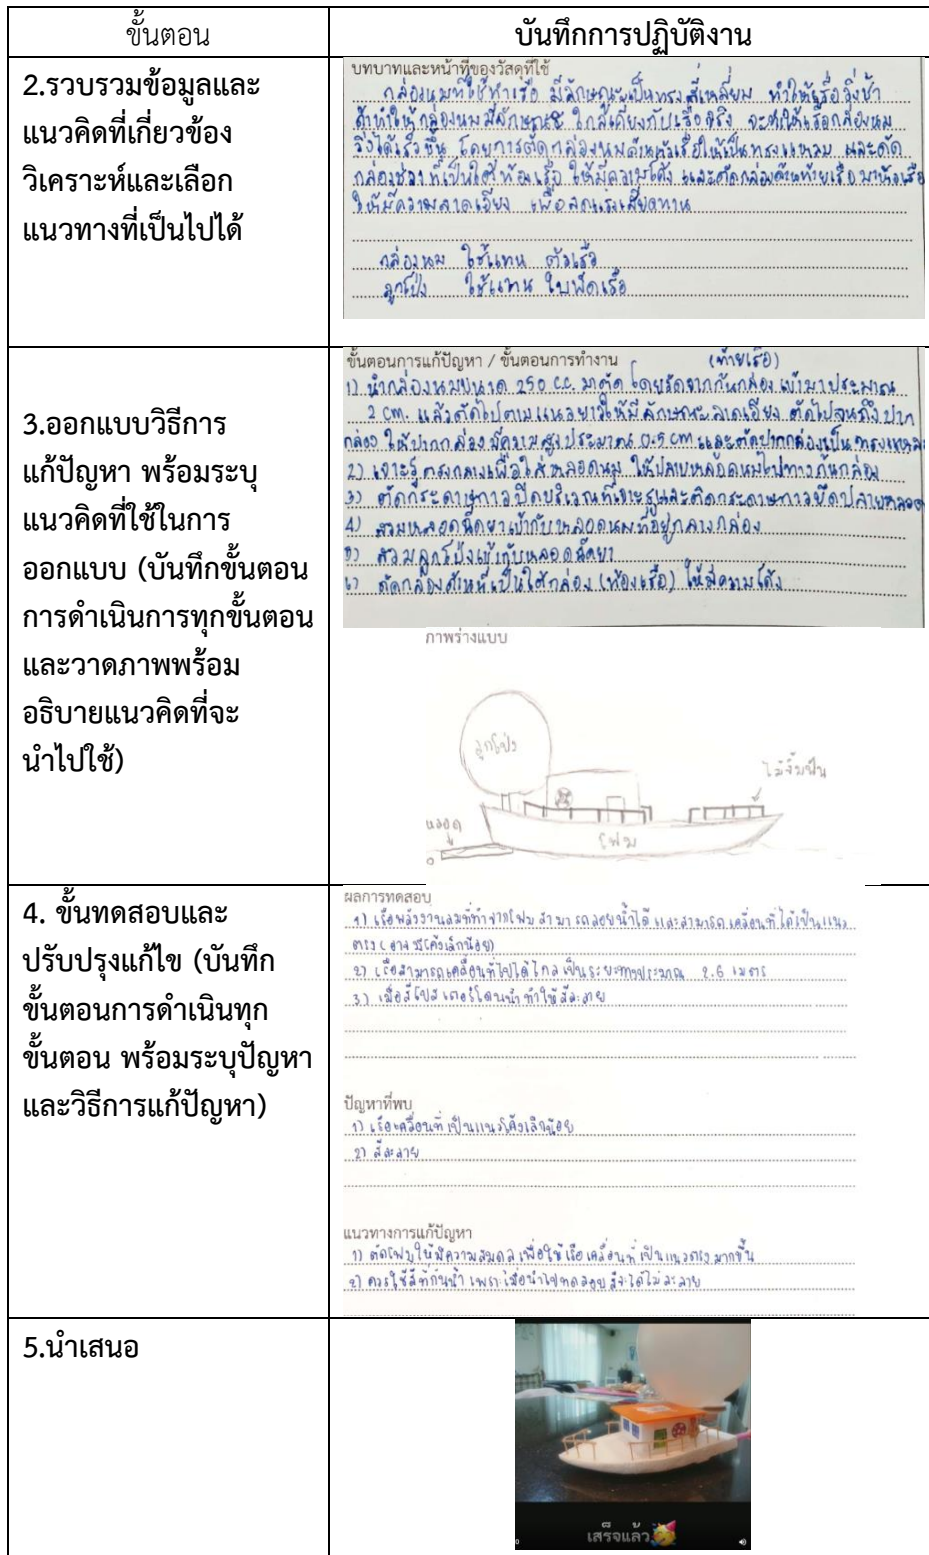 ขั้นตอน
บันทึกการปฏิบัติงาน
2.รวบรวมข้อมูลและ
แนวคิดที่เกี่ยวข้อง
วิเคราะห์และเลือก
แนวทางที่เป็นไปได้
บทบาทและหน้าที่ของวัสดุที่ใช้
กล่องนมที่ใช้ทำเรือ มีลักษณะเป็นทรงสี่เหลี่ยม ทำให้เรือวิ่งช้า
ถ้าทำให้กล่องนมมีลักษณะ ใกล้เคียงกับเรือจริง จะทำให้เรือกล่องนม
วิ่งได้เร็วขึ้น โดยการตัดกล่องนมด้านหัวเรือให้เป็นทรงแหลม และตัด
กล่องช่วงที่เป็นใต้ท้องเรือ ให้มีความโค้ง และตัดกล่องด้านท้ายเรือมาหัวเรือ
ให้มีความลาดเอียง เพื่อลดแรงเสียดทาน
กล่องนม ใช้แทน ตัวเรือ
ลูกโป่ง ใช้แทน ใบพัดเรือ
3.ออกแบบวิธีการ
แก้ปัญหา พร้อมระบุ
แนวคิดที่ใช้ในการ
ออกแบบ (บันทึกขั้นตอน
การดำเนินการทุกขั้นตอน
และวาดภาพพร้อม
อธิบายแนวคิดที่จะ
นำไปใช้)
ขั้นตอนการแก้ปัญหา / ขั้นตอนการทำงาน (ท้ายเรือ)
1) นำกล่องนมขนาด 250 c.c. มาตัด โดยวัดจากก้นกล่อง เข้ามาประมาณ
2 cm. แล้วตัดไปตามแนวยาวให้มีลักษณะลาดเอียง ตัดไปจนถึงปาก
กล่อง ให้ปากกล่องมีความสูงประมาณ 0.5 cm และตัดปากกล่องเป็นทรงแหลม
2) เจาะรูตรงกลางเพื่อใส่หลอดนม ให้ปลายหลอดนมไปทางก้นกล่อง
3) ตัดกระดาษกาวปิดบริเวณที่เจาะรูและติดกระดาษกาวยึดปลายหลอด
4) สวมหลอดฉีดยาเข้ากับหลอดนมที่อยู่กลางกล่อง
5) สวมลูกโป่งเข้ากับหลอดฉีดยา
6) ตัดกล่องด้านที่เป็นใต้กล่อง (ท้องเรือ) ให้มีความโค้ง
ภาพร่างแบบ
ลูกโป่ง
ไม้จิ้มฟัน
หลอด
โฟม
4. ขั้นทดสอบและ
ปรับปรุงแก้ไข (บันทึก
ขั้นตอนการดำเนินทุก
ขั้นตอน พร้อมระบุปัญหา
และวิธีการแก้ปัญหา)
ผลการทดสอบ
1) เรือพลังงานลมที่ทำจากโฟม สามารถลอยน้ำได้ และสามารถเคลื่อนที่ได้เป็นแนว
ตรง (อาจจะโค้งเล็กน้อย)
2) เรือสามารถเคลื่อนที่ไปได้ไกลเป็นระยะทางประมาณ 2.6 เมตร
3) เมื่อสีโปสเตอร์โดนน้ำ ทำให้สีละลาย
ปัญหาที่พบ
1) เรือเคลื่อนที่เป็นแนวโค้งเล็กน้อย
2) สีละลาย
แนวทางการแก้ปัญหา
1) ตัดโฟมให้มีความสมดุล เพื่อให้เรือเคลื่อนที่เป็นแนวตรงมากขึ้น
2) ควรใช้สีที่กันน้ำ เพราะเมื่อนำไปทดลอง สีจะได้ไม่ละลาย
5.นำเสนอ
เสร็จแล้ว